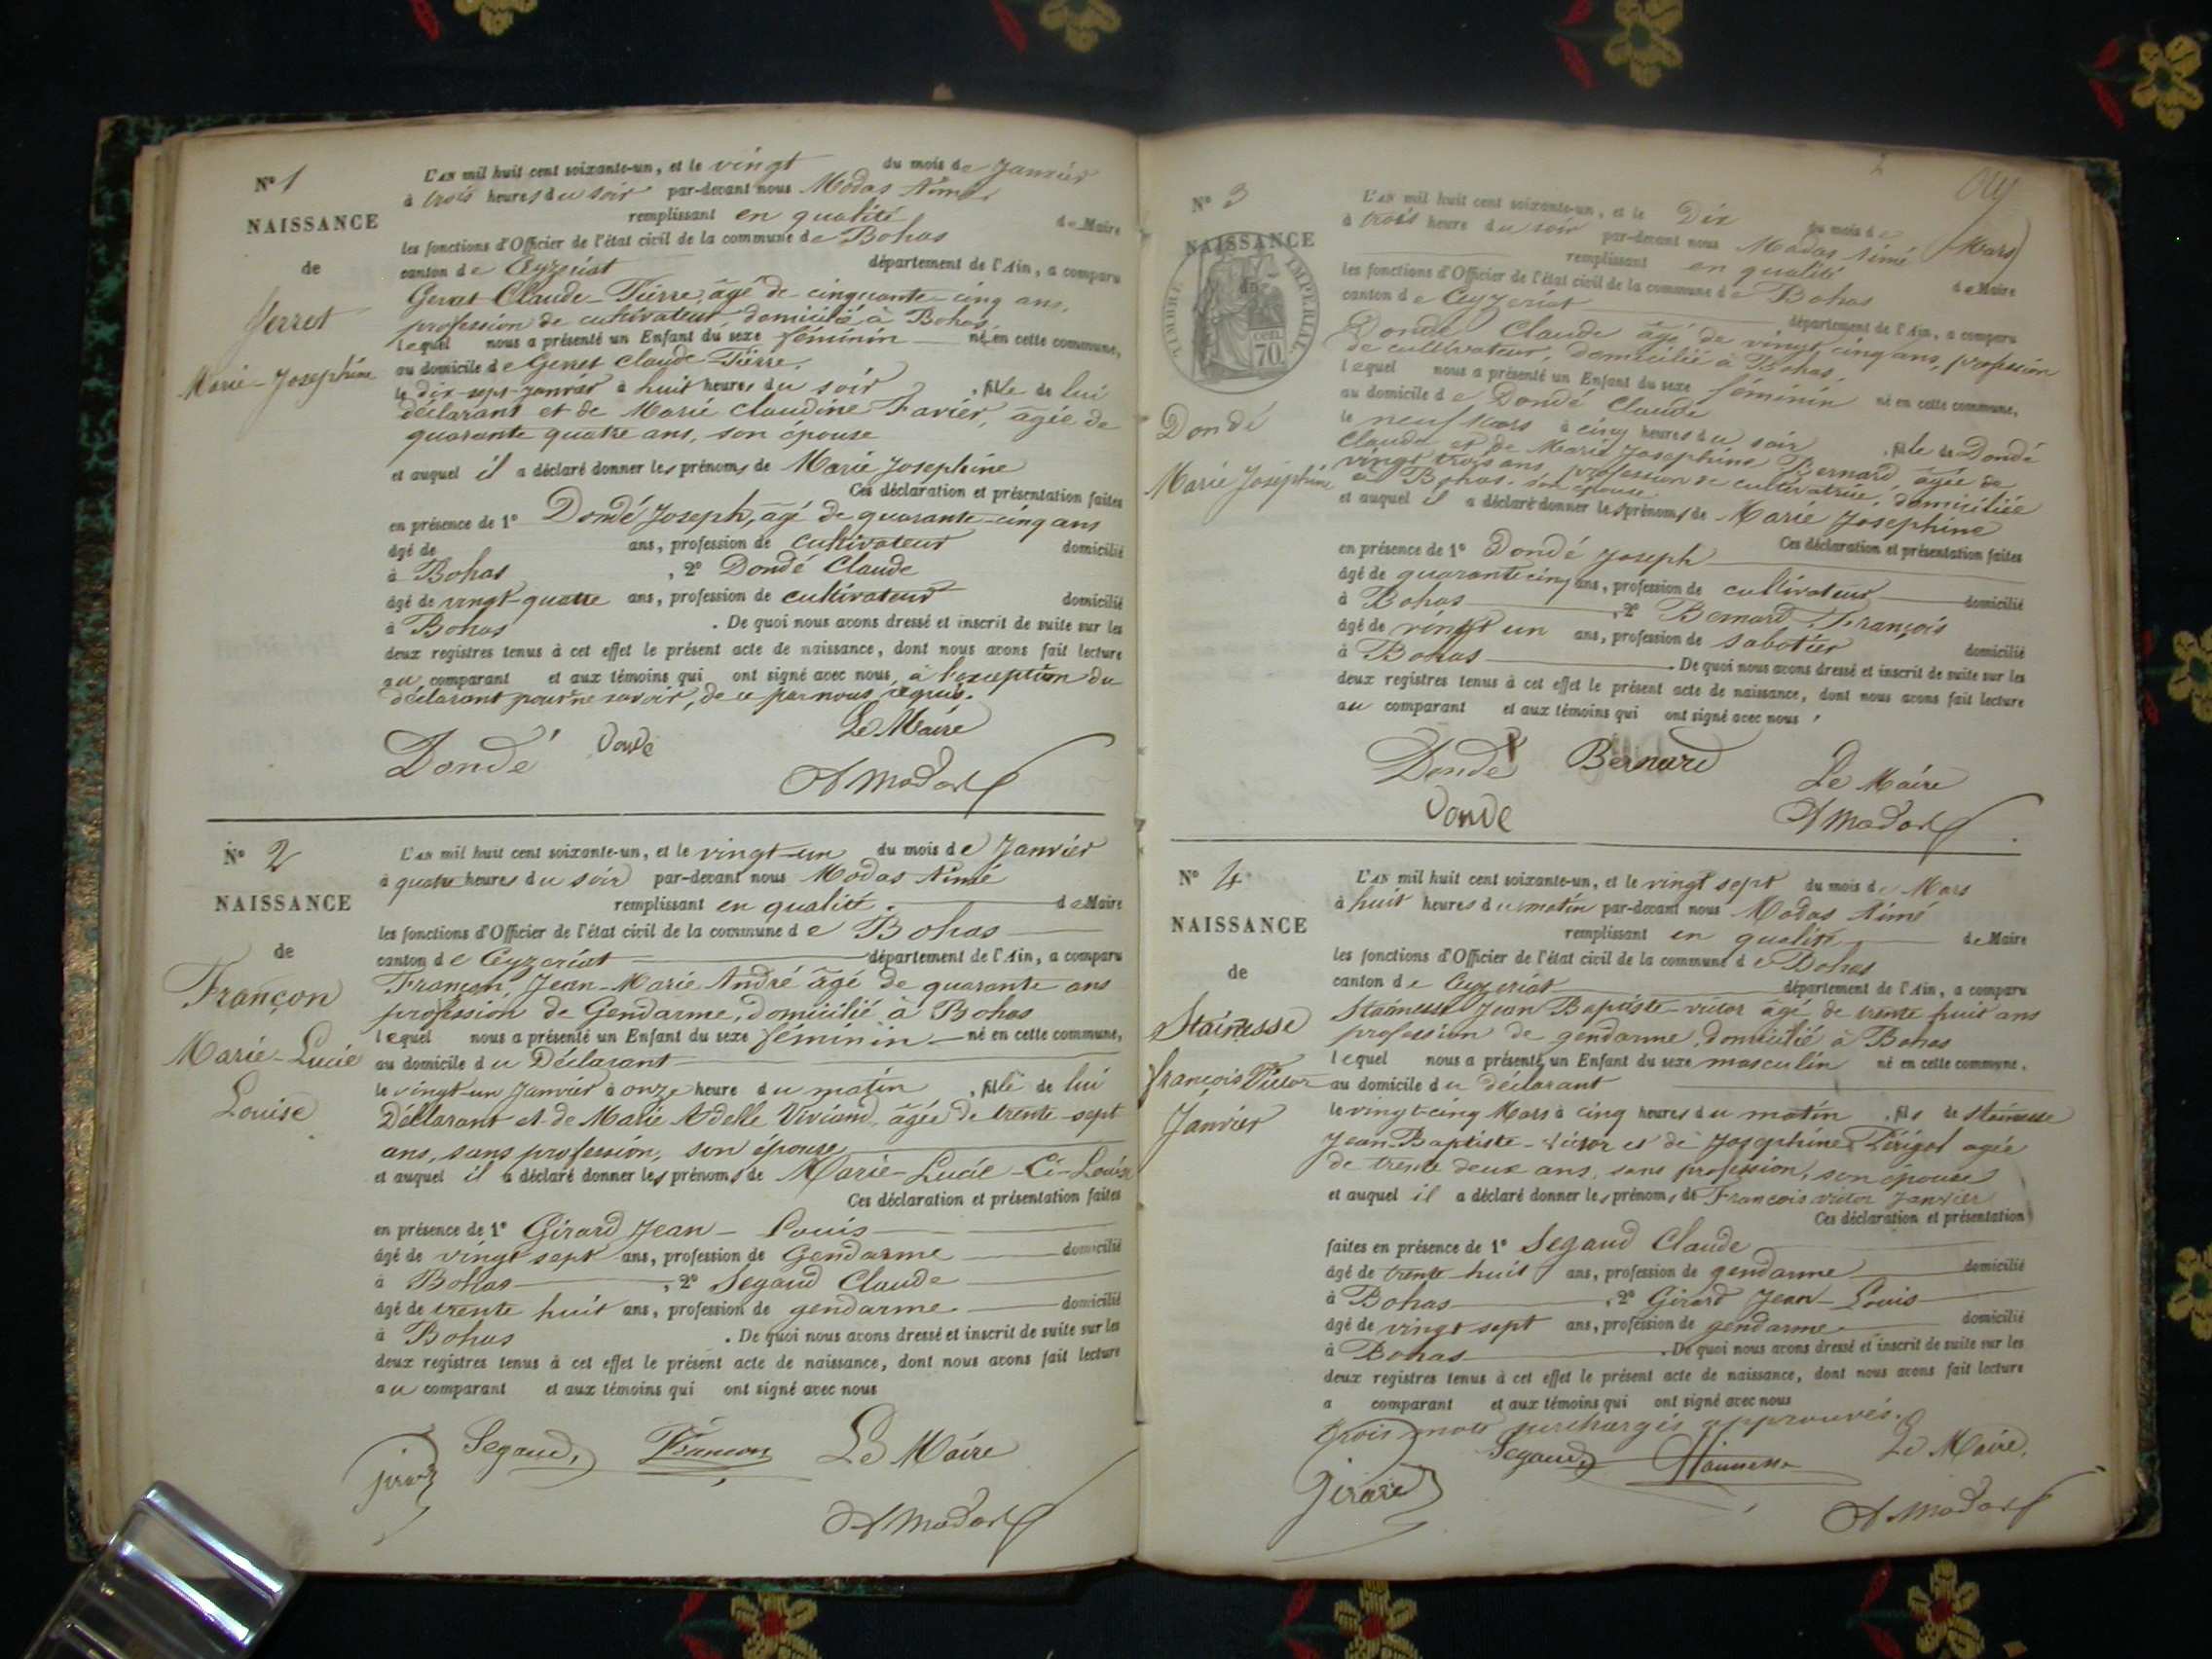 N° 1
NAISSANCE
de
Marie-Josephine
L'AN mil huit cent soixante-un, et le vingt du mois de Janvier
à trois heures du soir par-devant nous Modas Aimé
remplissant en qualité de Maire
les fonctions d'Officier de l'état civil de la commune de Bohas
canton de Ceyzeriat département de l'Ain, a comparu
Claude-Pierre, âgé de cinquante-cinq ans,
profession de cultivateur domicilié à Bohas,
lequel nous a présenté un Enfant du sexe féminin né en cette commune,
au domicile de Genet Claude-Pierre,
le dix-sept janvier à huit heures du soir, fille de lui
déclarant et de Marie Claudine Favier, âgée de
quarante quatre ans, son épouse
et auquel il a déclaré donner les prénoms de Marie Josephine
Ces déclaration et présentation faites
en présence de 1° Dondé Joseph, âgé de quarante-cinq ans
âgé de ans, profession de cultivateur domicilié
à Bohas , 2° Dondé Claude
âgé de vingt-quatre ans, profession de cultivateur domicilié
à Bohas . De quoi nous avons dressé et inscrit de suite sur les
deux registres tenus à cet effet le présent acte de naissance, dont nous avons fait lecture
au comparant et aux témoins qui ont signé avec nous, à l'exception du
déclarant pour ne savoir, de ce par nous requis.
Le Maire
Dondé Donde
A Modas
N° 2
NAISSANCE
de
Françon
Marie-Lucie
Louise
L'AN mil huit cent soixante-un, et le vingt-un du mois de Janvier
à quatre heures du soir par-devant nous Modas Aimé
remplissant en qualité de Maire
les fonctions d'Officier de l'état civil de la commune de Bohas
canton de Ceyzeriat département de l'Ain, a comparu
Françon Jean-Marie André âgé de quarante ans
profession de Gendarme, domicilié à Bohas
lequel nous a présenté un Enfant du sexe féminin né en cette commune,
au domicile du Déclarant
le vingt-un Janvier à onze heure du matin, fille de lui
Déclarant et de Marie Adelle Viviand, âgée de trente-sept
ans, sans profession, son épouse
et auquel il a déclaré donner les prénoms de Marie-Lucie Louise
Ces déclaration et présentation faites
en présence de 1° Girard Jean-Louis
âgé de vingt sept ans, profession de Gendarme domicilié
à Bohas , 2° Segaud Claude
âgé de trente huit ans, profession de gendarme domicilié
à Bohas . De quoi nous avons dressé et inscrit de suite sur les
deux registres tenus à cet effet le présent acte de naissance, dont nous avons fait lecture
au comparant et aux témoins qui ont signé avec nous
Segaud Françon Le Maire
A Modas
N° 3
NAISSANCE
de
TIMBRE IMPERIAL
70
Dondé
Marie Joséphine
L'AN mil huit cent soixante-un, et le Dix du mois de Mars
à trois heure du soir par-devant nous Modas Aimé
remplissant en qualité de Maire
les fonctions d'Officier de l'état civil de la commune de Bohas
canton de Ceyzeriat département de l'Ain, a comparu
Dondé Claude âgé de vingt cinq ans, profession
de cultivateur, domicilié à Bohas,
lequel nous a présenté un Enfant du sexe féminin né en cette commune,
au domicile de Dondé Claude
le neuf Mars à cinq heures du soir, fille de Dondé
Claude et de Marie Josephine Bernard, âgée de
vingt trois ans, profession de cultivatrice, domiciliée
à Bohas, son épouse
et auquel il a déclaré donner les prénoms de Marie Josephine
Ces déclaration et présentation faites
en présence de 1° Dondé Joseph
âgé de quarante cinq ans, profession de cultivateur domicilié
à Bohas , 2° Bernard François
âgé de vingt un ans, profession de sabotier domicilié
à Bohas . De quoi nous avons dressé et inscrit de suite sur les
deux registres tenus à cet effet le présent acte de naissance, dont nous avons fait lecture
au comparant et aux témoins qui ont signé avec nous
Dondé Bernard Le Maire
Donde A Modas
N° 4
NAISSANCE
de
Stainesse
François Victor
Janvier
L'AN mil huit cent soixante-un, et le vingt sept du mois de Mars
à huit heures du matin par-devant nous Modas Aimé
remplissant en qualité de Maire
les fonctions d'Officier de l'état civil de la commune de Bohas
canton de Ceyzeriat département de l'Ain, a comparu
Stainesse Jean Baptiste-victor âgé de trente huit ans
profession de gendarme, domicilié à Bohas
lequel nous a présenté un Enfant du sexe masculin né en cette commune,
au domicile du déclarant
le vingt-cinq Mars à cinq heures du matin, fils de Stainesse
Jean-Baptiste-Victor et de Josephine Périgot agée
de trente deux ans, sans profession, son épouse
et auquel il a déclaré donner les prénoms de François victor Janvier
Ces déclaration et présentation
faites en présence de 1° Segaud Claude
âgé de trente-huit ans, profession de gendarme domicilié
à Bohas , 2° Girard Jean-Louis
âgé de vingt sept ans, profession de gendarme domicilié
à Bohas . De quoi nous avons dressé et inscrit de suite sur les
deux registres tenus à cet effet le présent acte de naissance, dont nous avons fait lecture
a comparant et aux témoins qui ont signé avec nous
trois mots surchargés approuvés.
Girard Segaud Stainesse Le Maire,
A Modas